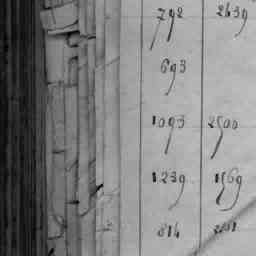 792 2439
693
1093 2500
1239 1569
814